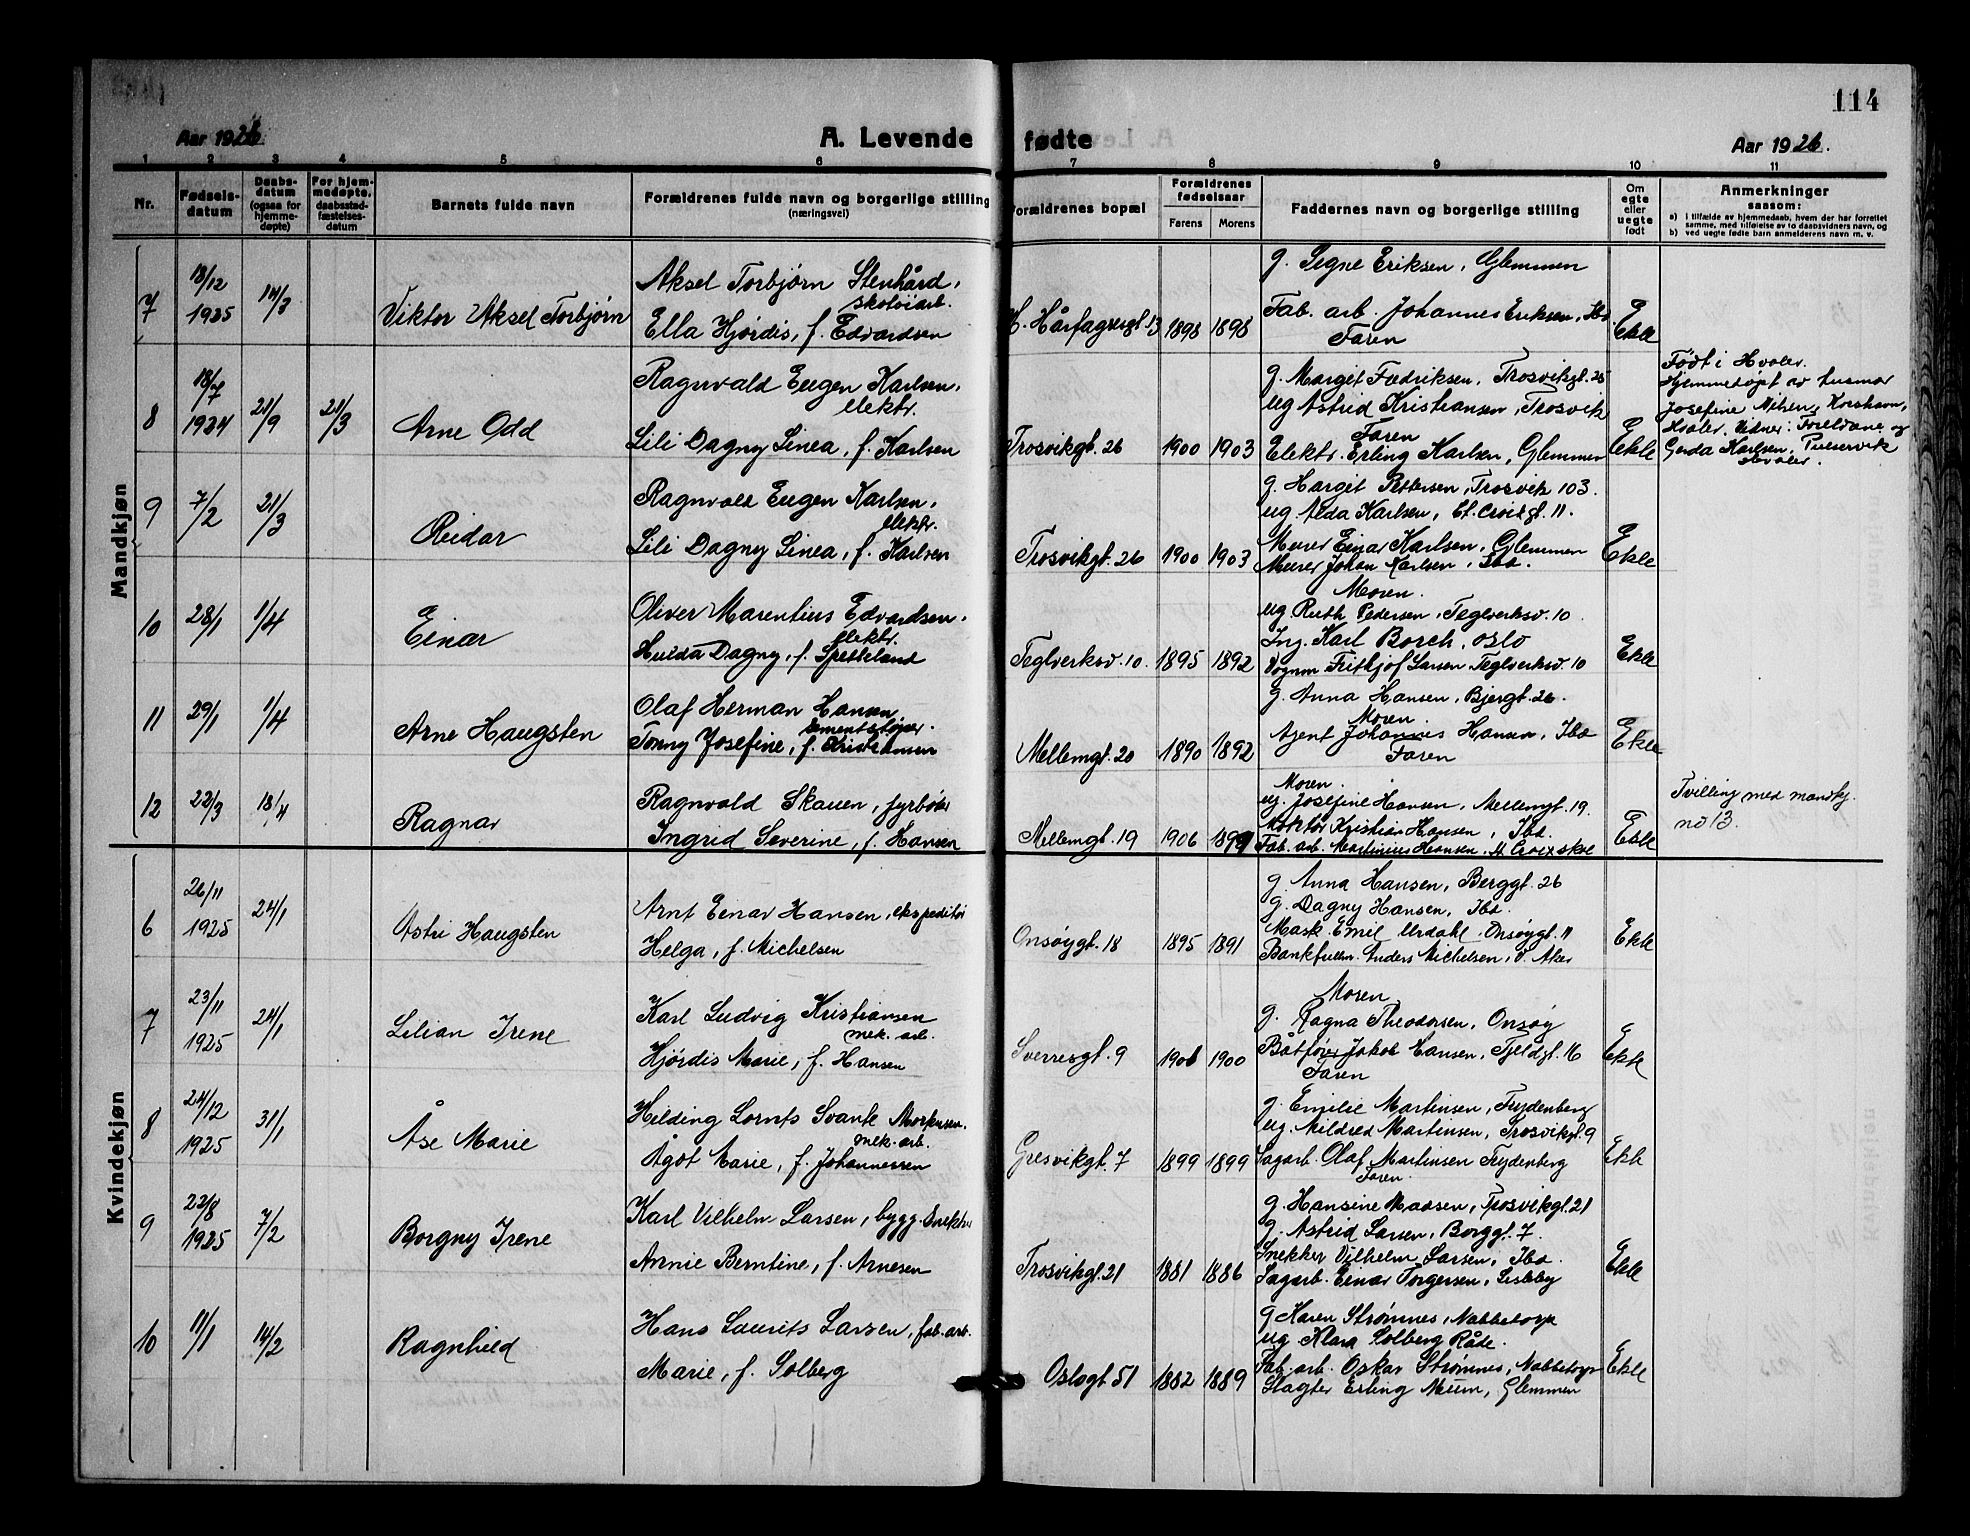 114
Aar 1926
A. Levende fødte
Aar 1926.
1 2 3 4 5 6 7 8 9 10 11
Nr.
Fødsels-datum
Daabs-datum (ogsaa for hjemme-døpte)
For hjem-medøpte, daabsstad-fæstelses-datum
Barnets fulde navn
Forældrenes fulde navn og borgerlige stilling
(næringsvei)
Forældrenes bopæl
Forældrenes fødselsaar
Farens Morens
Faddernes navn og borgerlige stilling
Om egte eller uegte født
Anmerkninger
saasom:
a) i tilfælde av hjemmedaab, hvem der har forrettet
samme, med tilføielse av to daabsvidners navn, og
b) ved uegte fødte barn anmelderens navn m. v.
Mandkjøn
7 18/12 1925 14/3 Viktor Aksel Torbjørn
Aksel Torbjørn Stenhård,
skotøiarb.
Ella Hjørdis, f. Edvardsen
H. Hårfagresgt. 13 1898 1898
g. Signe Eriksen, Glemmen
Fab. arb. Johannes Eriksen, Ibd
Faren
Ekte
8 18/7 1924 21/9 21/3 Arne Odd
Ragnvald Eugen Karlsen,
elektr.
Lili Dagny Linea, f. Karlsen
Trosvikgt. 26 1900 1903
g. Margit Fredriksen, Trosvikgt. 25
ug Astrid Kristiansen, Trosvik
Faren
Elektr. Erling Karlsen, Glemmen
Ekte
Født i Hvaler.
Hjemmedøpt av husmor
Josefine Korshavn,
Hvaler. Vidner: Foreldrene og
Gerda Karlsen,
Hvaler.
9 7/2 21/3 Reidar
Ragnvald Eugen Karlsen,
elektr.
Lili Dagny Linea, f. Karlsen
Trosvikgt. 26 1900 1903
g. Margit Pettersen, Trosvik 103.
ug. Alda Karlsen, St. Croixgt. 11.
Murer Einar Karlsen, Glemmen
Murer Johan Karlsen, Ibd.
Ekte
10 28/1 1/4 Einar
Oliver Marentius Edvardsen,
elektr.
Hulda Dagny, f. Spetteland
Teglverksv. 10 1895 1892
Moren.
ug Ruth Pedersen, Teglverksv. 10
Ing. Karl Borch, Oslo
Vognm Frithjof Larsen Teglverksv. 10
Ekte
11 29/1 1/4 Arne Haugsten
Olaf Herman Hansen
cementstøper.
Tonny Josefine, f. Kristiansen
Mellemgt. 20 1890 1892
g. Anna Hansen, Bjergt. 26.
Moren.
Agent Johannes Hansen, Ibd
Faren
Ekte
12 22/3 18/4 Ragnar
Ragnvald Skauen, fyrbøter
Ingrid Severine, f. Hansen
Mellemgt. 19 1906 1899
Moren.
ug. Josefine Hansen, Mellemgt. 19.
Kristian Hansen, Ibd.
Fab. arb. Martinius Hansen, St Croix skole
Ekte
Tvilling med mandkj.
no 13.
Kvindekjøn
6 26/11 1925 24/1 Astri Haugsten
Arnt Einar Hansen, ekspeditør
Helga, f. Michelsen
Onsøygt. 18 1895 1891
g. Anna Hansen, Berggt. 26
g. Dagny Hansen, Ibd.
Mask. Emil Urdahl, Onsøygt. 11
Bankfullm. Anders Michelsen, V. Aker
Ekte
7 23/11 1925 24/1 Lilian Irene
Karl Ludvig Kristiansen
mek. arb.
Hjørdis Marie, f. Hansen
Sverresgt. 9 1901 1900
Moren
g. Ragna Theodorsen, Onsøy
Båtfører Jakob Hansen, Fjeldgt. 16
Faren
Ekte
8 24/12 1925 31/1 Åse Marie
Hilding Lornts Svante Markussen.
mek. arb.
Ågot Marie, f. Johannessen
Gresvikgt. 7 1899 1899
g. Emilie Martinsen, Frydenberg
ug. Mildred Martinsen, Trosvikgt. 9
Sagarb. Olaf Martinsen Frydenberg
Faren.
Ekte
9 22/8 1925 7/2 Borgny Irene
Karl Vilhelm Larsen, bygg. snekker
Annie Berntine, f. Arnesen
Trosvikgt. 21 1881 1886
g. Hansine Madsen, Trosvikgt. 21
g. Astrid Larsen, Borggt. 7.
Snekker Vilhelm Larsen, Ibd.
Sagarb. Einar Torgersen, Lisleby
Ekte
10 11/1 14/2 Ragnhild
Hans Laurits Larsen, fab. arb.
Marie, f. Solberg
Oslogt 51 1882 1889
g Karen Strømnes, Nabbetorp
ug Klara Solberg Råde.
Fab. arb. Oskar Strømnes, Nabbetorp
Slagter Erling Mium, Glemmen
Ekte